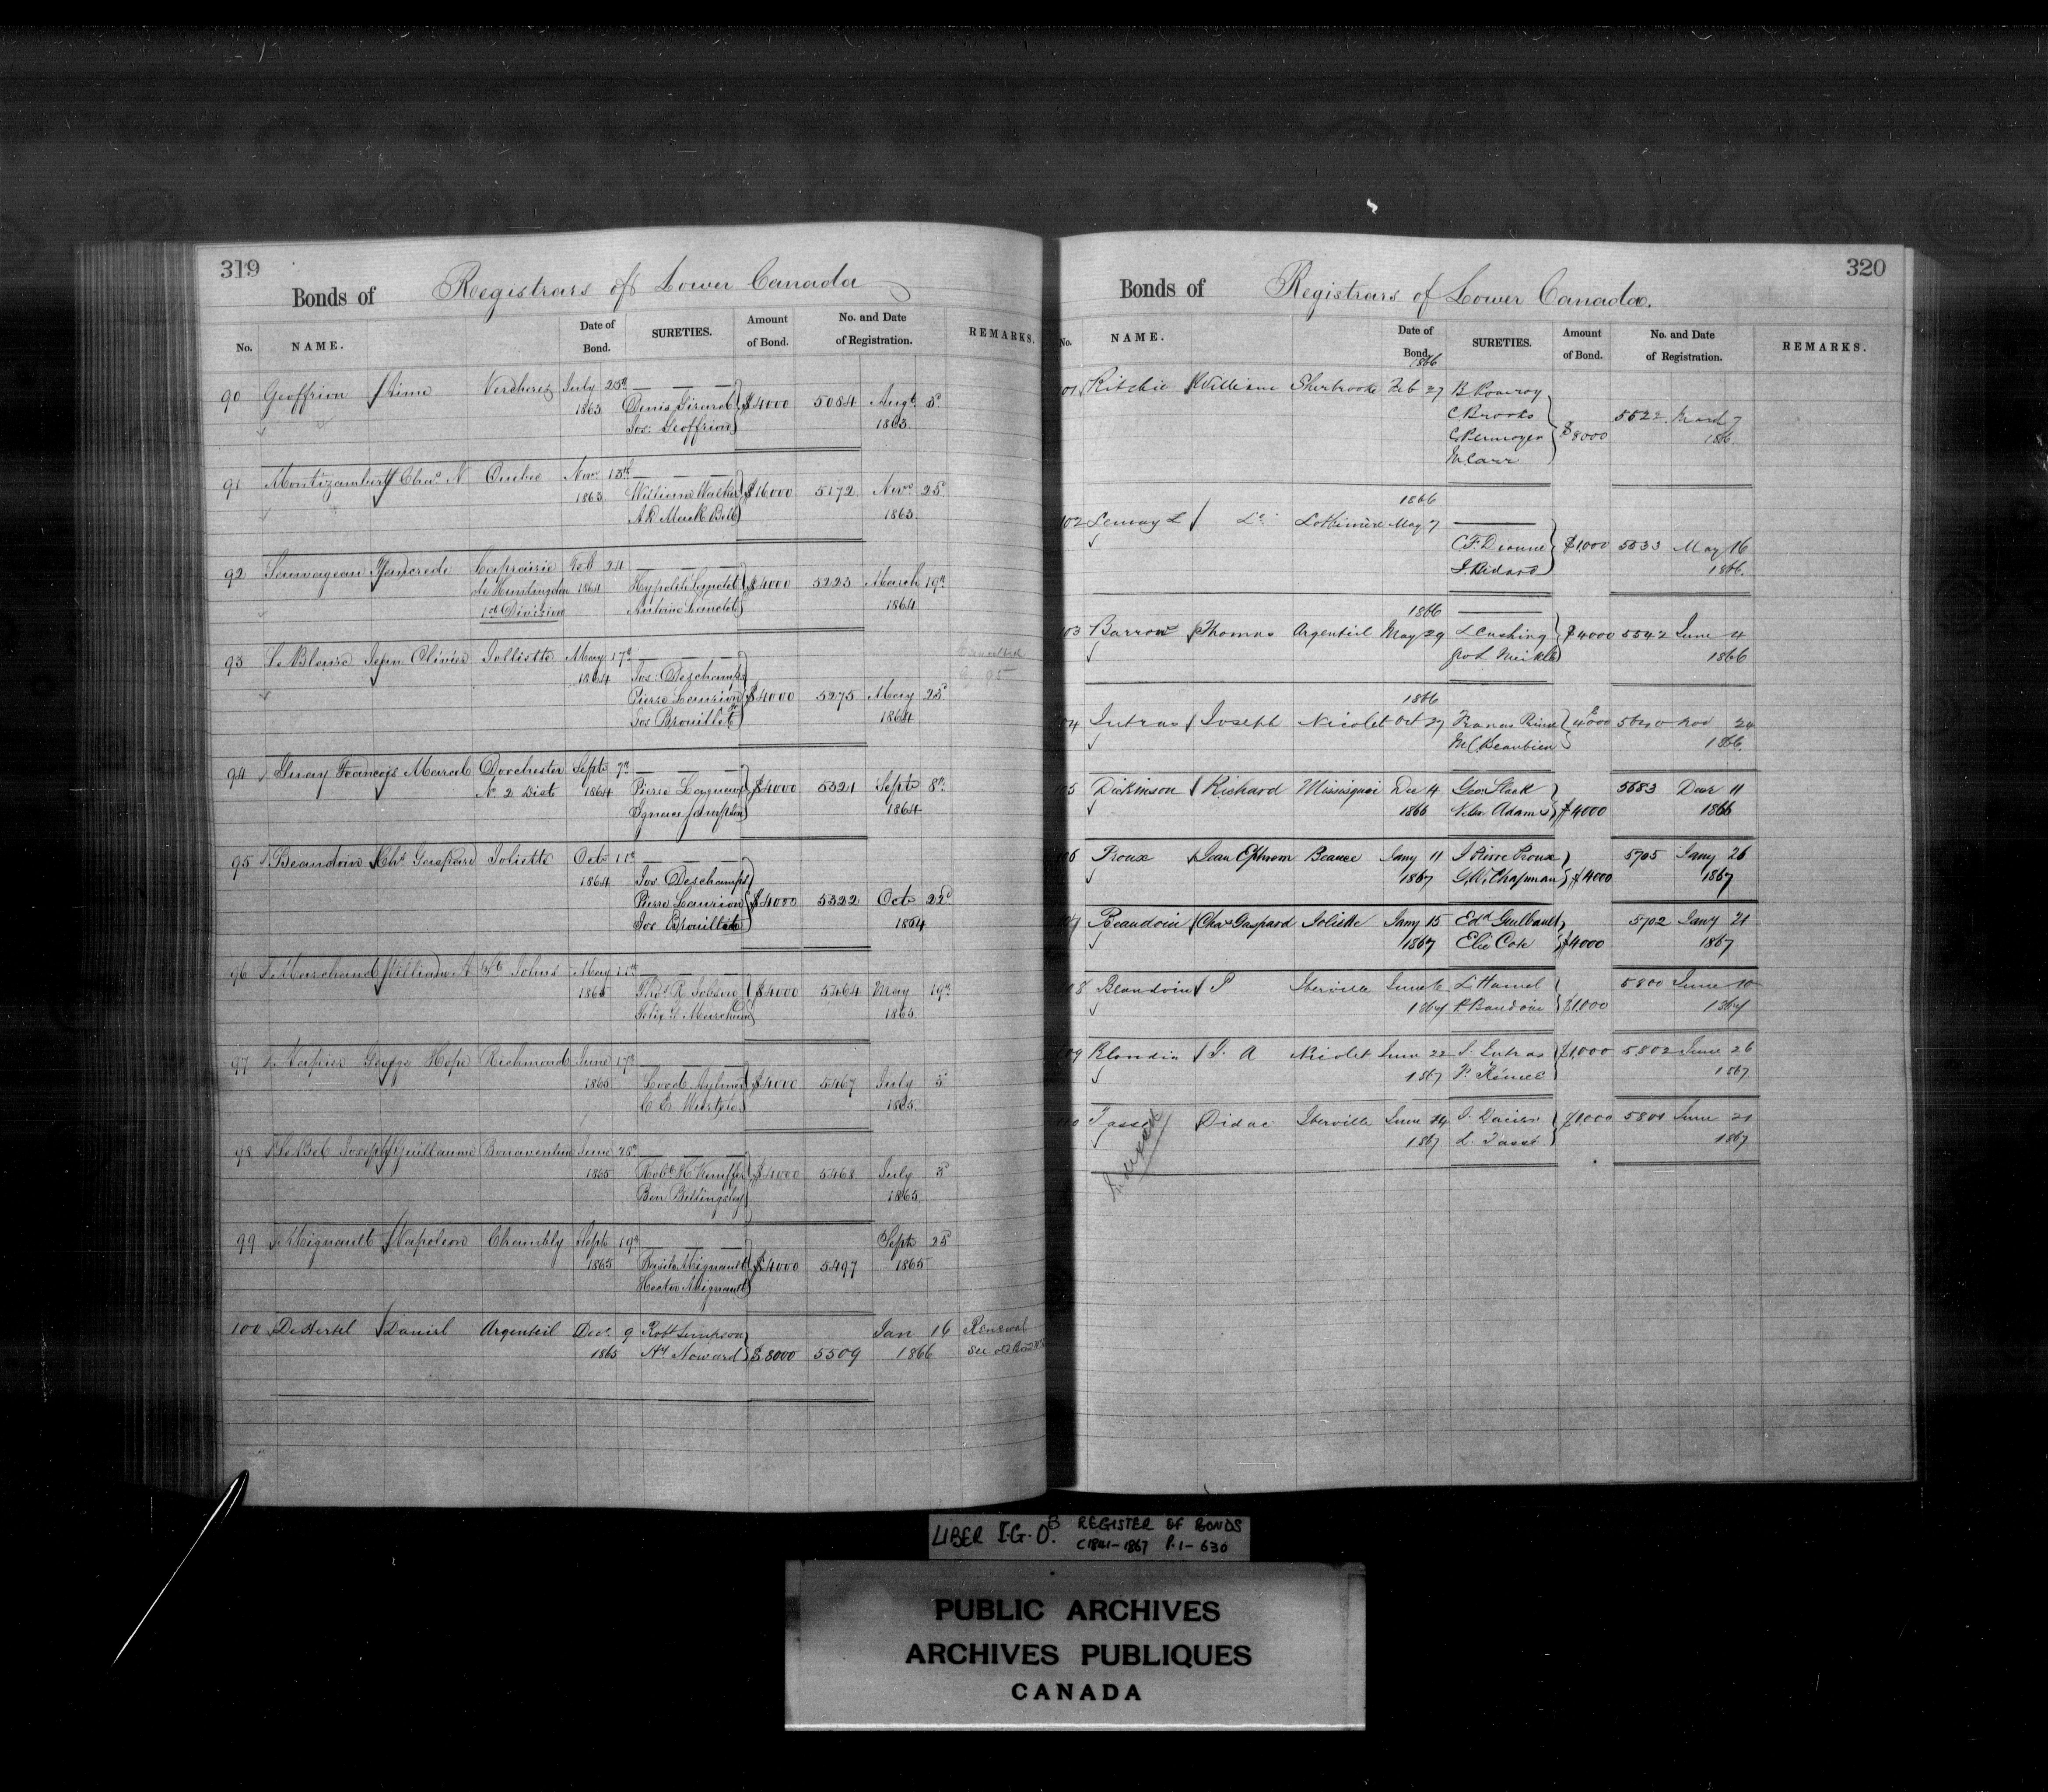 319
Bonds of Registrars of Lower Canada
No. NAME. Date of Bond. SURETIES. Amount of Bond. No. and Date of Registration. REMARKS.
90 Geoffrion Aimé Verchères July 25th — — —
1863 Denis Girard $4000 5084 Augt. 5
Jos: Geoffrion 1863.
91 Montizambert Chas. N Quebec Novr 13th — — —
1863 William Walker $16000 5172 Novr 25
A.D. Bell 1863.
92 Sauvageau Tancrede Laprairie Feb 24 — — —
de Huntingdon 1864 Hypolite $4000 5223 March 19th
1st Division Antoine Lanctot 1864
93 LeBlanc Jean Olivier Jolliette May 17th — — —
1864 Jos: Deschamps
Pierre $4000 5275 May 25
Jos Brouillet 1864
94 Guay François Marcel Dorchester Sept 7th — — —
No 2 Dist 1864 Pierre $4000 5321 Sept 8th
Ignace 1864
95 Beaudoin Chs Gaspard Joliette Oct — — —
1864 Jos Deschamps
Pierre $4000 5322 Oct 22d
Jos Brouillette 1864
96 William A St Johns May — — —
1865 Thos R Jobson $4000 5464 May 19th
1865
97 Napier George Hope Richmond June 17th — — —
1865 Aylmer $4000 5467 July 5
1865
98 LeBel Joseph Guillaume Bonaventure June — — —
1865 Robt $4000 5468 July 5
Ben Billingsley 1865
99 Mignault Napoleon Chambly Sept 19th — — — Sept 25
1865 Basile Mignault $4000 5497 1865
Hector Mignault
100 DeHertel Daniel Argenteil Decr 9 Robt Simpson Jan 16 Renewal
1865 Hy Howard $8000 5509 1866 See old Bond
320
Bonds of Registrars of Lower Canada.
No. NAME. Date of Bond. SURETIES. Amount of Bond. No. and Date of Registration. REMARKS.
1866
101 Ritchie William Sherbrooke Feb 27 B Pomroy
C Brooks 5522 March 7
$8000 186
1866
102 Lemay L Lotbiniere May 7 ———
C.F. Dionne $1,000 5533 May 16
1866.
1866 ———
103 Barron Thomas Argenteil May 29 L Cushing $4000 5542 June 4
Meikle 1866
1866
104 Lutras Joseph Nicolet Oct 27 4000 Nov 24
M.C. Beaubien 1866.
105 Dickinson Richard Missisquoi Dec 4 Geo. Slack 5683 Decr 11
1866 Adams $4000 1866
106 Proux Jean Ephrem Beauce Jany 11 J Pierre Proux 5705 Jany 26
1867 G.W. Chapman $4000 1867
107 Beaudoin Chas Gaspard Joliette Jany 15 Edd Guilbault 5702 Jany 21
1867 Elie Cote $4000 1867
108 P Iberville June 6 L Hamel 5800 June 10
1867 $1,000 1867
109 Blondin J. A Nicolet June 22 $1,000 5802 June 26
1867 1867
110 Tassé Iberville June 14 $1000 5801 June 21
1867 L. Tassé 1867
Indexed
LIBER I.G.O.B REGISTER OF BONDS
C1841-1867 P.1-630
PUBLIC ARCHIVES
ARCHIVES PUBLIQUES
CANADA